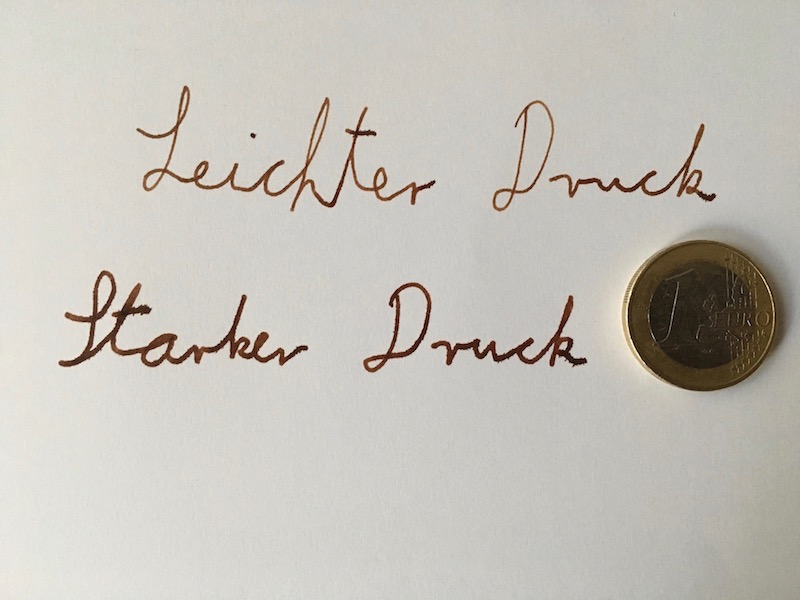 Leichter Druck
Starker Druck
1 EURO